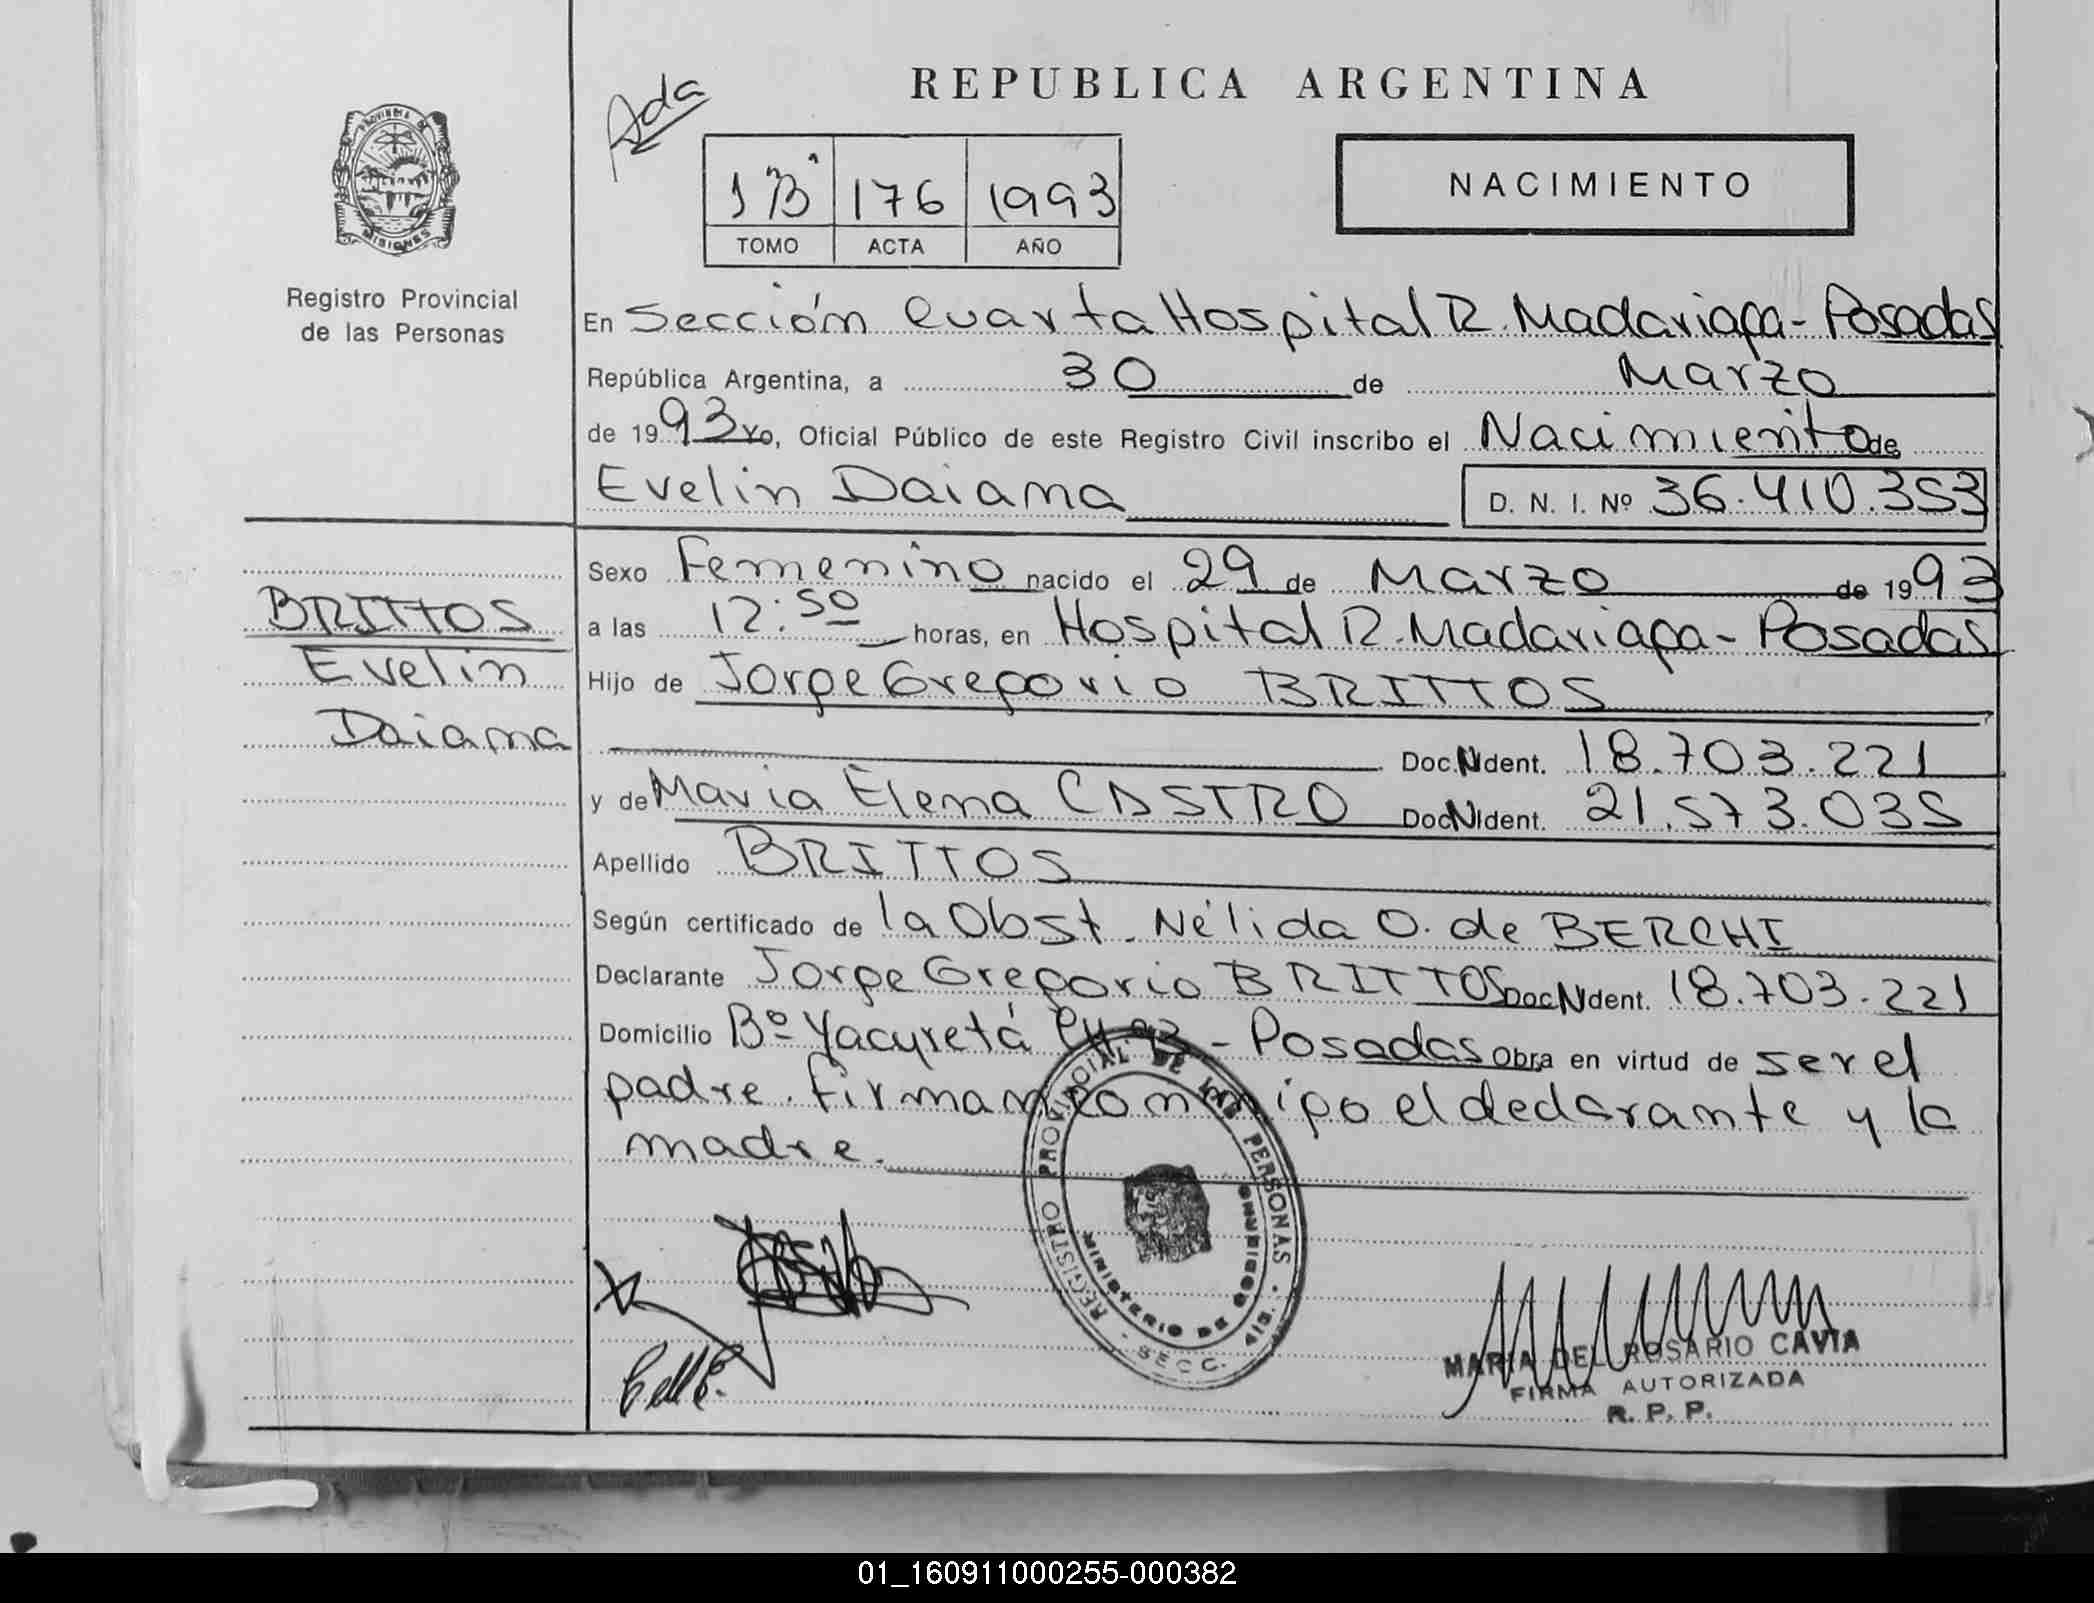 REPUBLICA ARGENTINA
Ada
PROVINCIA DE MISIONES
176 1993
TOMO ACTA AÑO
NACIMIENTO
Registro Provincial
de las Personas
En Sección Cuarta Hospital R. Madariaga - Posadas
República Argentina, a 30 de Marzo
de 1993 Yo, Oficial Público de este Registro Civil inscribo el Nacimiento de
Evelin Daiana D. N. I. Nº 36.410.353
Sexo Femenino nacido el 29 de Marzo de 1993
BRITTOS
Evelin
Daiana
a las 12:50 horas, en Hospital R. Madariaga - Posadas
Hijo de Jorge Gregorio BRITTOS
Doc. N Ident. 18.703.221
y de Maria Elena CASTRO Doc N Ident. 21.573.035
Apellido BRITTOS
Según certificado de la Obst. Nélida O. de BERCHI
Declarante Jorge Gregorio BRITTOS Doc N Ident. 18.703.221
Domicilio Bº Yacyretá - Posadas Obra en virtud de ser el
padre. firman conmigo el declarante y la
madre.
REGISTRO PROVINCIAL DE LAS PERSONAS
MINISTERIO DE GOBIERNO
SECC. 4
MARIA DEL ROSARIO CAVIA
FIRMA AUTORIZADA
R. P. P.
01_160911000255-000382